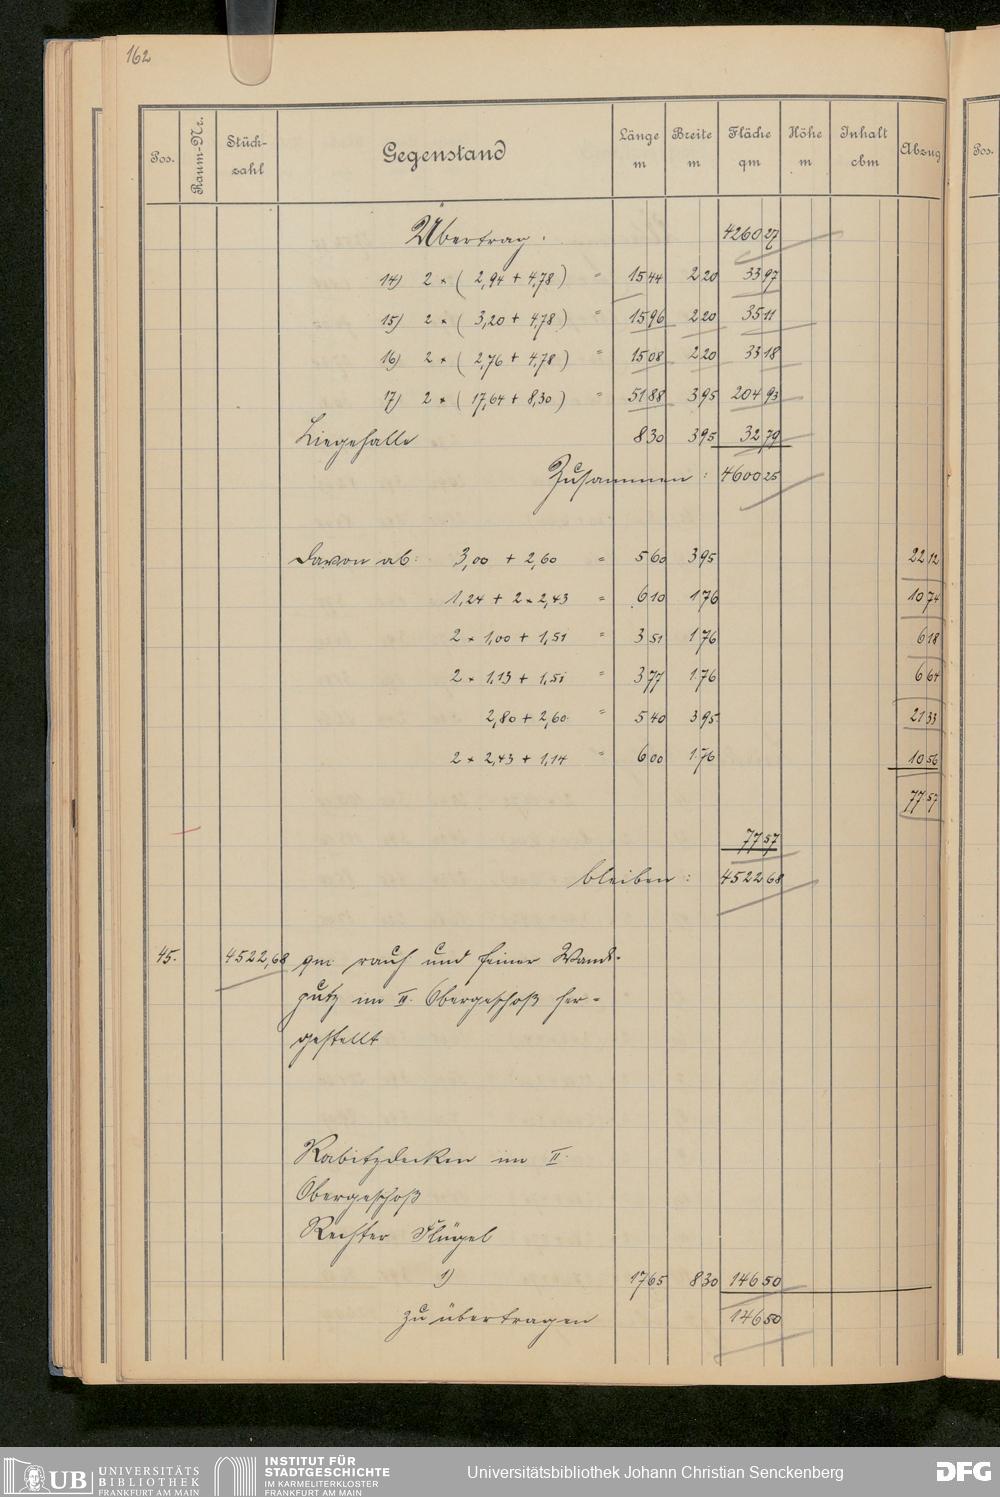 162
Pos. Raum-Nr. Stück-zahl Gegenstand Länge m Breite m Fläche qm Höhe m Inhalt cbm Abzug Pos.
Übertrag. 4260 27
14) 2 × (2,94 + 4,78) = 15 44 2 20 33 97
15) 2 × (3,20 + 4,78) = 15 96 2 20 35 11
16) 2 × (2,76 + 4,78) = 15 08 2 20 33 18
17) 2 × (17,64 + 8,30) = 51 88 3 95 204 93
Liegehalle 8 30 3 95 32 79
Zusammen: 4600 25
Davon ab: 3,00 + 2,60 = 5 60 3 95 22 12
1,24 + 2 × 2,43 = 6 10 1 76 10 74
2 × 1,00 + 1,51 = 3 51 1 76 6 18
2 × 1,13 + 1,51 = 3 77 1 76 6 64
2,80 + 2,60 = 5 40 3 95 21 33
2 × 2,43 + 1,14 = 6 00 1 76 10 56
77 57
77 57
bleiben: 4522 68
45. 4522,68 qm rauh und feiner Wand-
putz im II. Obergeschoß her-
gestellt
Rabitzdecken im II.
Obergeschoß
Rechter Flügel
1) 17 65 8 30 146 50
zu übertragen 146 50
UB UNIVERSITÄTS BIBLIOTHEK FRANKFURT AM MAIN
INSTITUT FÜR STADTGESCHICHTE IM KARMELITERKLOSTER FRANKFURT AM MAIN
Universitätsbibliothek Johann Christian Senckenberg
DFG